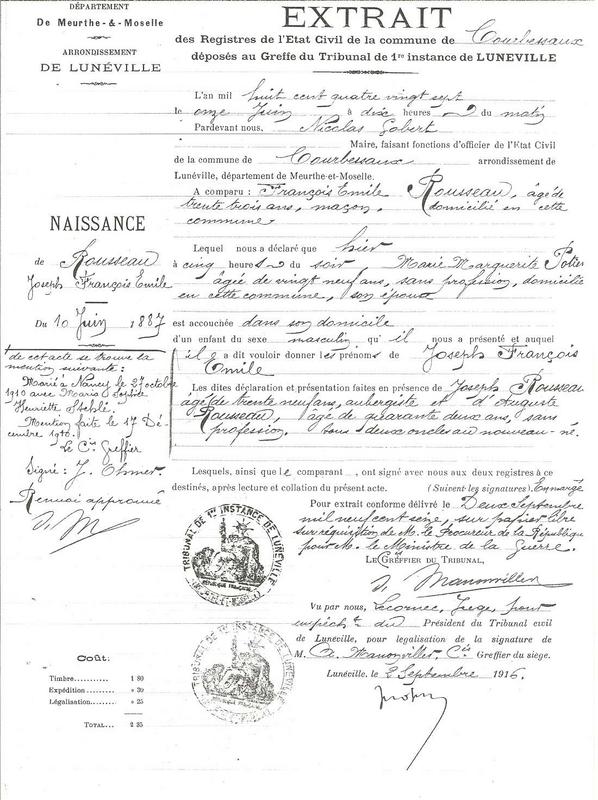 DÉPARTEMENT
De Meurthe-&-Moselle
ARRONDISSEMENT
DE LUNÉVILLE
EXTRAIT
des Registres de l'Etat Civil de la commune de Courbessaux
déposés au Greffe du Tribunal de 1re instance de LUNEVILLE
L'an mil huit cent quatre vingt sept
le onze Juin à dix heures du matin
Pardevant nous, Nicolas Gobert
Maire, faisant fonctions d'officier de l'Etat Civil
de la commune de Courbessaux arrondissement de
Lunéville, département de Meurthe-et-Moselle.
A comparu : François Emile Rousseau, âgé de
trente trois ans, maçon, domicilié en cette
commune
Lequel nous a déclaré que hier
à cinq heures du soir, Marie Marguerite Potier
âgée de vingt neuf ans, sans profession, domiciliée
en cette commune, son épouse
est accouchée dans son domicile
d'un enfant du sexe masculin qu'il nous a présenté et auquel
il a dit vouloir donner les prénoms de Joseph François
Emile
Les dites déclaration et présentation faites en présence de Joseph Rousseau
âgé de trente neuf ans, aubergiste et d'Auguste
Rousseau, âgé de quarante deux ans, sans
profession. tous deux oncles au nouveau-né.
Lesquels, ainsi que le comparant, ont signé avec nous aux deux registres à ce
destinés, après lecture et collation du présent acte. (Suivent les signatures). En marge
NAISSANCE
de Rousseau
Joseph François Emile
Du 10 Juin 1887
de cet acte se trouve la
mention suivante :
Marié à Nancy le 27 octobre
1910 avec Marie
Henriette
Mention faite le 17 Dé-
cembre 1910.
Le Cis Greffier
Signé: J.
Renvoi approuvé
Pour extrait conforme délivré le Deux Septembre
mil neuf cent seize, sur papier libre
sur réquisition de M. le Procureur de la République
pour M. le Ministre de la Guerre.
LE GREFFIER DU TRIBUNAL,
Manonviller
Vu par nous, Juge, pour
empêcht du Président du Tribunal civil
de Lunéville, pour legalisation de la signature de
M. A. Manonviller, Cis Greffier du siege.
Lunéville, le 2 Septembre 1916.
TRIBUNAL DE 1RE INSTANCE DE LUNÉVILLE
TRIBUNAL DE 1RE INSTANCE DE LUNÉVILLE
Coût:
Timbre........... 1 80
Expédition....... » 30
Légalisation..... » 25
TOTAL... 2 35